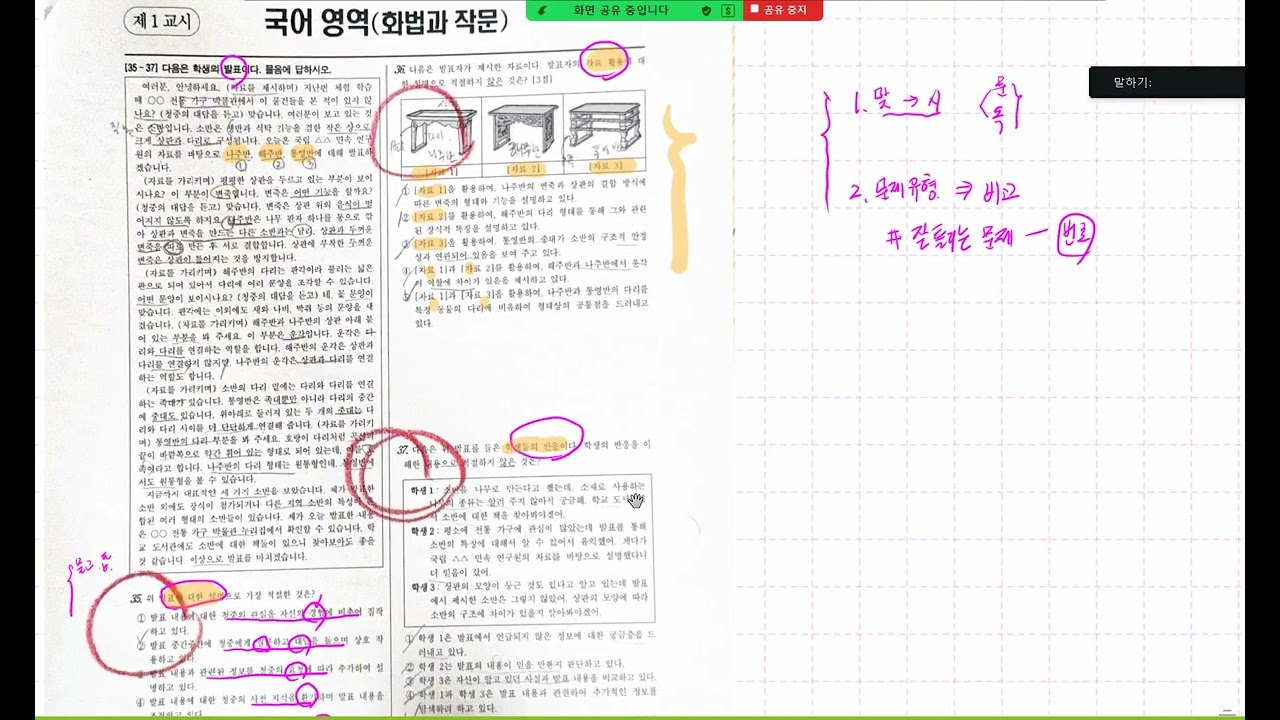 화면 공유 중입니다
공유 중지
말하기:
제 1 교시
국어 영역(화법과 작문)
[35~37] 다음은 학생의 발표이다. 물음에 답하시오.
여러분, 안녕하세요. (자료를 제시하며) 지난번 체험 학습
때 ○○ 전통 가구 박물관에서 이 물건들을 본 적이 있지 않
나요? (청중의 대답을 듣고) 맞습니다. 여러분이 보고 있는 것
은 소반입니다. 소반은 쟁반과 식탁 기능을 겸한 작은 상으로
크게 상판과 다리로 구성됩니다. 오늘은 국립 △△ 민속 연구
원의 자료를 바탕으로 나주반, 해주반, 통영반에 대해 발표하
겠습니다.
(자료를 가리키며) 평평한 상판을 두르고 있는 부분이 보이
시나요? 이 부분이 변죽입니다. 변죽은 어떤 기능을 할까요?
(청중의 대답을 듣고) 맞습니다. 변죽은 상판 위의 음식이 떨
어지지 않도록 하지요. 나주반은 나무 판자 하나를 통으로 깎
아 상판과 변죽을 만드는 다른 소반과는 달리, 상판과 두꺼운
변죽을 따로 만든 후 서로 결합합니다. 상판에 부착한 두꺼운
변죽은 상판이 틀어지는 것을 방지합니다.
(자료를 가리키며) 해주반의 다리는 판각이라 불리는 넓은
판으로 되어 있어서 다리에 여러 문양을 조각할 수 있습니다.
어떤 문양이 보이시나요? (청중의 대답을 듣고) 네, 꽃 문양이
맞습니다. 판각에는 이외에도 새와 나비, 박쥐 등의 문양을 새
겼습니다. (자료를 가리키며) 해주반과 나주반의 상판 아래 붙
어 있는 부분을 봐 주세요. 이 부분은 운각입니다. 운각은 다
리와 다리를 연결하는 역할을 합니다. 해주반의 운각은 상판과
다리를 연결하지 않지만, 나주반의 운각은 상판과 다리를 연결
하는 역할도 합니다.
(자료를 가리키며) 소반의 다리 밑에는 다리와 다리를 연결
하는 족대가 있습니다. 통영반은 족대뿐만 아니라 다리의 중간
에 중대도 있습니다. 위아래로 둘러져 있는 두 개의 중대는 다
리와 다리 사이를 더 단단하게 연결해 줍니다. (자료를 가리키
며) 통영반의 다리 부분을 봐 주세요. 호랑이 다리처럼 곡선의
끝이 바깥쪽으로 약간 휘어 있는 형태로 되어 있는데,
족이라고 합니다. 나주반의 다리 형태는 원통형인데, 통영반에
서도 원통형을 볼 수 있습니다.
지금까지 대표적인 세 가지 소반을 보았습니다. 제가 발표한
소반 외에도 장식이 첨가되거나 다른 지역 소반의 특성이
합된 여러 형태의 소반들이 있습니다. 제가 오늘 발표한 내용
은 ○○ 전통 가구 박물관 누리집에서 확인할 수 있습니다. 학
교 도서관에도 소반에 대한 책들이 있으니 찾아보아도 좋을
것 같습니다. 이상으로 발표를 마치겠습니다.
35. 위 발표에 대한 설명으로 가장 적절한 것은?
① 발표 내용에 대한 청중의 관심을 자신의 경험에 비추어 짐작
하고 있다.
② 발표 중간중간에 청중에게 질문하고 대답을 들으며 상호 작
용하고 있다.
③ 발표 내용과 관련된 정보를 청중의 요청에 따라 추가하여 설
명하고 있다.
④ 발표 내용에 대한 청중의 사전 지식을 환기하며 발표 내용을
36. 다음은 발표자가 제시한 자료이다. 발표자의 자료 활용에 대
한 설명으로 적절하지 않은 것은? [3점]
나주반
해주반
[자료 1]
[자료 2]
[자료 3]
① [자료 1]을 활용하여, 나주반의 변죽과 상판의 결합 방식에
따른 변죽의 형태와 기능을 설명하고 있다.
② [자료 2]를 활용하여, 해주반의 다리 형태를 통해 그와 관련
된 장식적 특징을 설명하고 있다.
③ [자료 3]을 활용하여, 통영반의 중대가 소반의 구조적 안정
성과 연관되어 있음을 보여 주고 있다.
④ [자료 1]과 [자료 2]를 활용하여, 해주반과 나주반에서 운각
의 역할에 차이가 있음을 제시하고 있다.
⑤ [자료 1]과 [자료 3]을 활용하여, 나주반과 통영반의 다리를
특정 동물의 다리에 비유하여 형태상의 공통점을 드러내고
있다.
37. 다음은 위 발표를 들은 학생들의 반응이다. 학생의 반응을 이
해한 내용으로 적절하지 않은 것은?
학생 1: 소반을 나무로 만든다고 했는데, 소재로 사용하는
나무의 종류는 알려 주지 않아서 궁금해. 학교 도서관에
서 소반에 대한 책을 찾아봐야겠어.
학생 2: 평소에 전통 가구에 관심이 많았는데 발표를 통해
소반의 특징에 대해서 알 수 있어서 유익했어. 게다가
국립 △△ 민속 연구원의 자료를 바탕으로 설명했다니
더 믿음이 갔어.
학생 3: 상판의 모양이 둥근 것도 있다고 알고 있는데 발표
에서 제시한 소반은 그렇지 않았어. 상판의 모양에 따라
소반의 구조에 차이가 있을지 알아봐야겠어.
① 학생 1은 발표에서 언급되지 않은 정보에 대한 궁금증을 드
러내고 있다.
② 학생 2는 발표의 내용이 믿을 만한지 판단하고 있다.
③ 학생 3은 자신이 알고 있던 사실과 발표 내용을 비교하고 있다.
④ 학생 1과 학생 3은 발표 내용과 관련하여 추가적인 정보를
탐색하려 하고 있다.
1. 맞 → 시
문
독
2. 문제유형 ⇒ 비고
# 잘 틀리는 문제 ― 번호